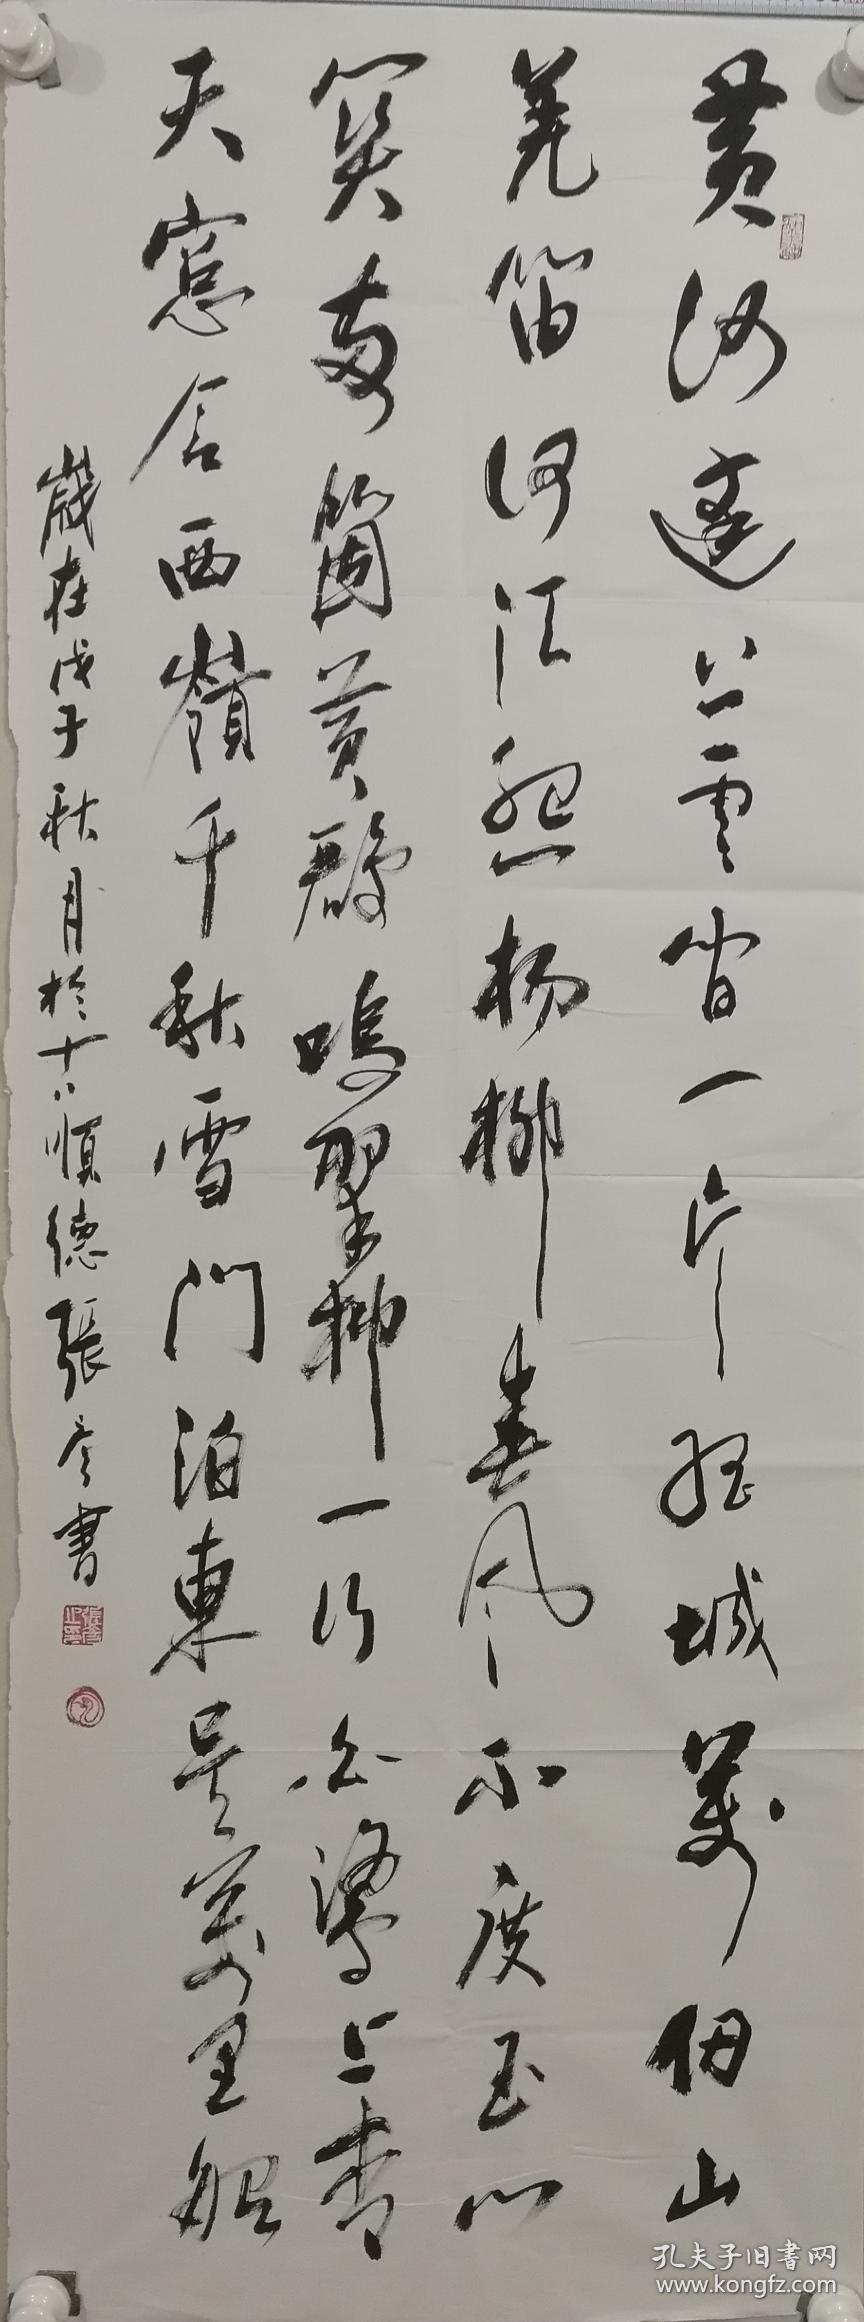 黄河遠上白雲間一片孤城萬仞山
羌笛何須怨楊柳春風不度玉門
関兩箇黄鸝鳴翠柳一行白鷺上青
天窓含西嶺千秋雪門泊東吴萬里船
歲在戊子秋月於十八順德張彥書
孔夫子旧書网
www.kongfz.com